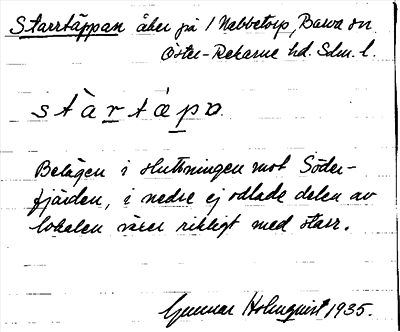 Starrtäppan åker på 1 Nabbetorp, Barva sn
Öster-Rekarne hd. Sdm. l.
stàrtæ̀pa
Belägen i sluttningen mot Söder-
fjärden, i nedre ej odlade delen av
lokalen växer rikligt med starr.
Gunnar Holmquist 1935.